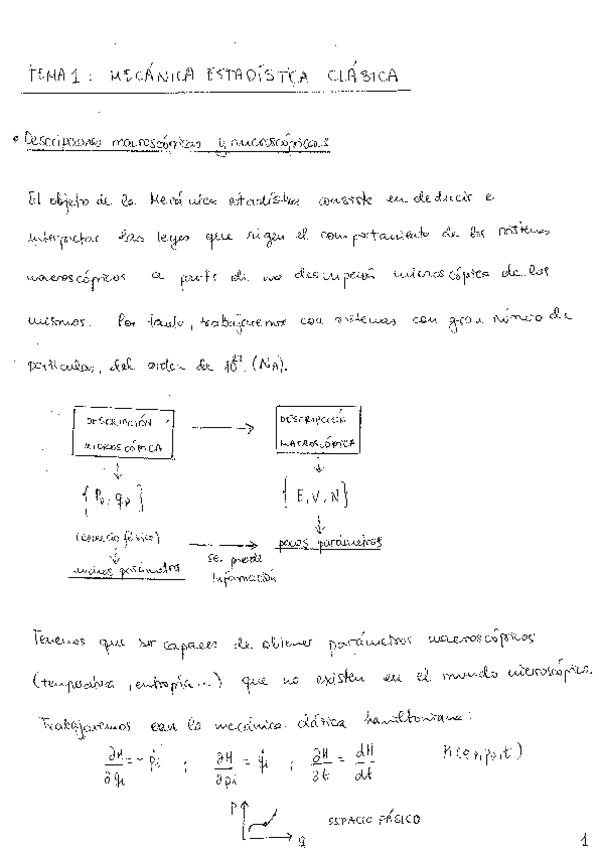 TEMA 1: MECÁNICA ESTADÍSTICA CLÁSICA
• Descripciones macroscópicas y microscópicas
El objeto de la Mecánica estadística consiste en deducir e
interpretar las leyes que rigen el comportamiento de los sistemas
macroscópicos a partir de una descripción microscópica de los
mismos. Por tanto, trabajaremos con sistemas con gran número de
partículas, del orden de 10²³ (N_A).
DESCRIPCIÓN MICROSCÓPICA → DESCRIPCIÓN MACROSCÓPICA
↓ ↓
{ , } {E, V, N}
(espacio fásico) ↓
↓ → pocos parámetros
muchos parámetros se pierde
información
Tenemos que ser capaces de obtener parámetros macroscópicos
(temperatura, entropía...) que no existen en el mundo microscópico.
Trabajaremos con la mecánica clásica hamiltoniana:
∂H/∂qᵢ = -ṗᵢ ; ∂H/∂pᵢ = q̇ᵢ ; ∂H/∂t = dH/dt
P
ESPACIO FÁSICO
q
1